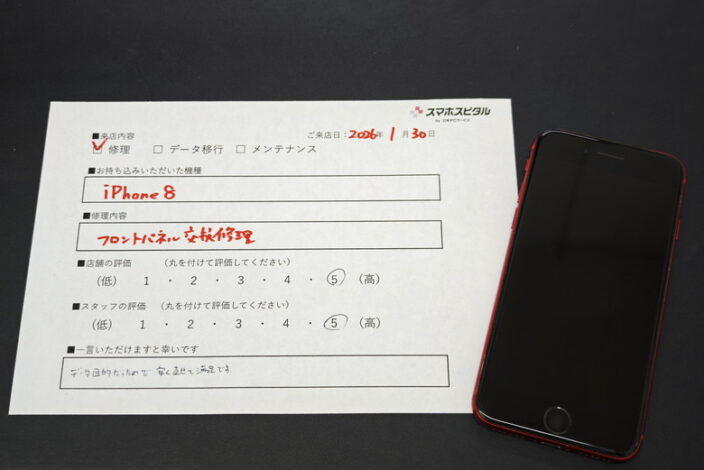 スマホスピタル
by 日本PCサービス
■来店内容
ご来店日：2026年 1月 30日
☑ 修理 □ データ移行 □ メンテナンス
■お持ち込みいただいた機種
iPhone 8
■修理内容
フロントパネル 交換修理
■店舗の評価 （丸を付けて評価してください）
（低） 1 ・ 2 ・ 3 ・ 4 ・ 5 （高）
■スタッフの評価 （丸を付けて評価してください）
（低） 1 ・ 2 ・ 3 ・ 4 ・ 5 （高）
■一言いただけますと幸いです
データ目的だったので 安く直せて満足です